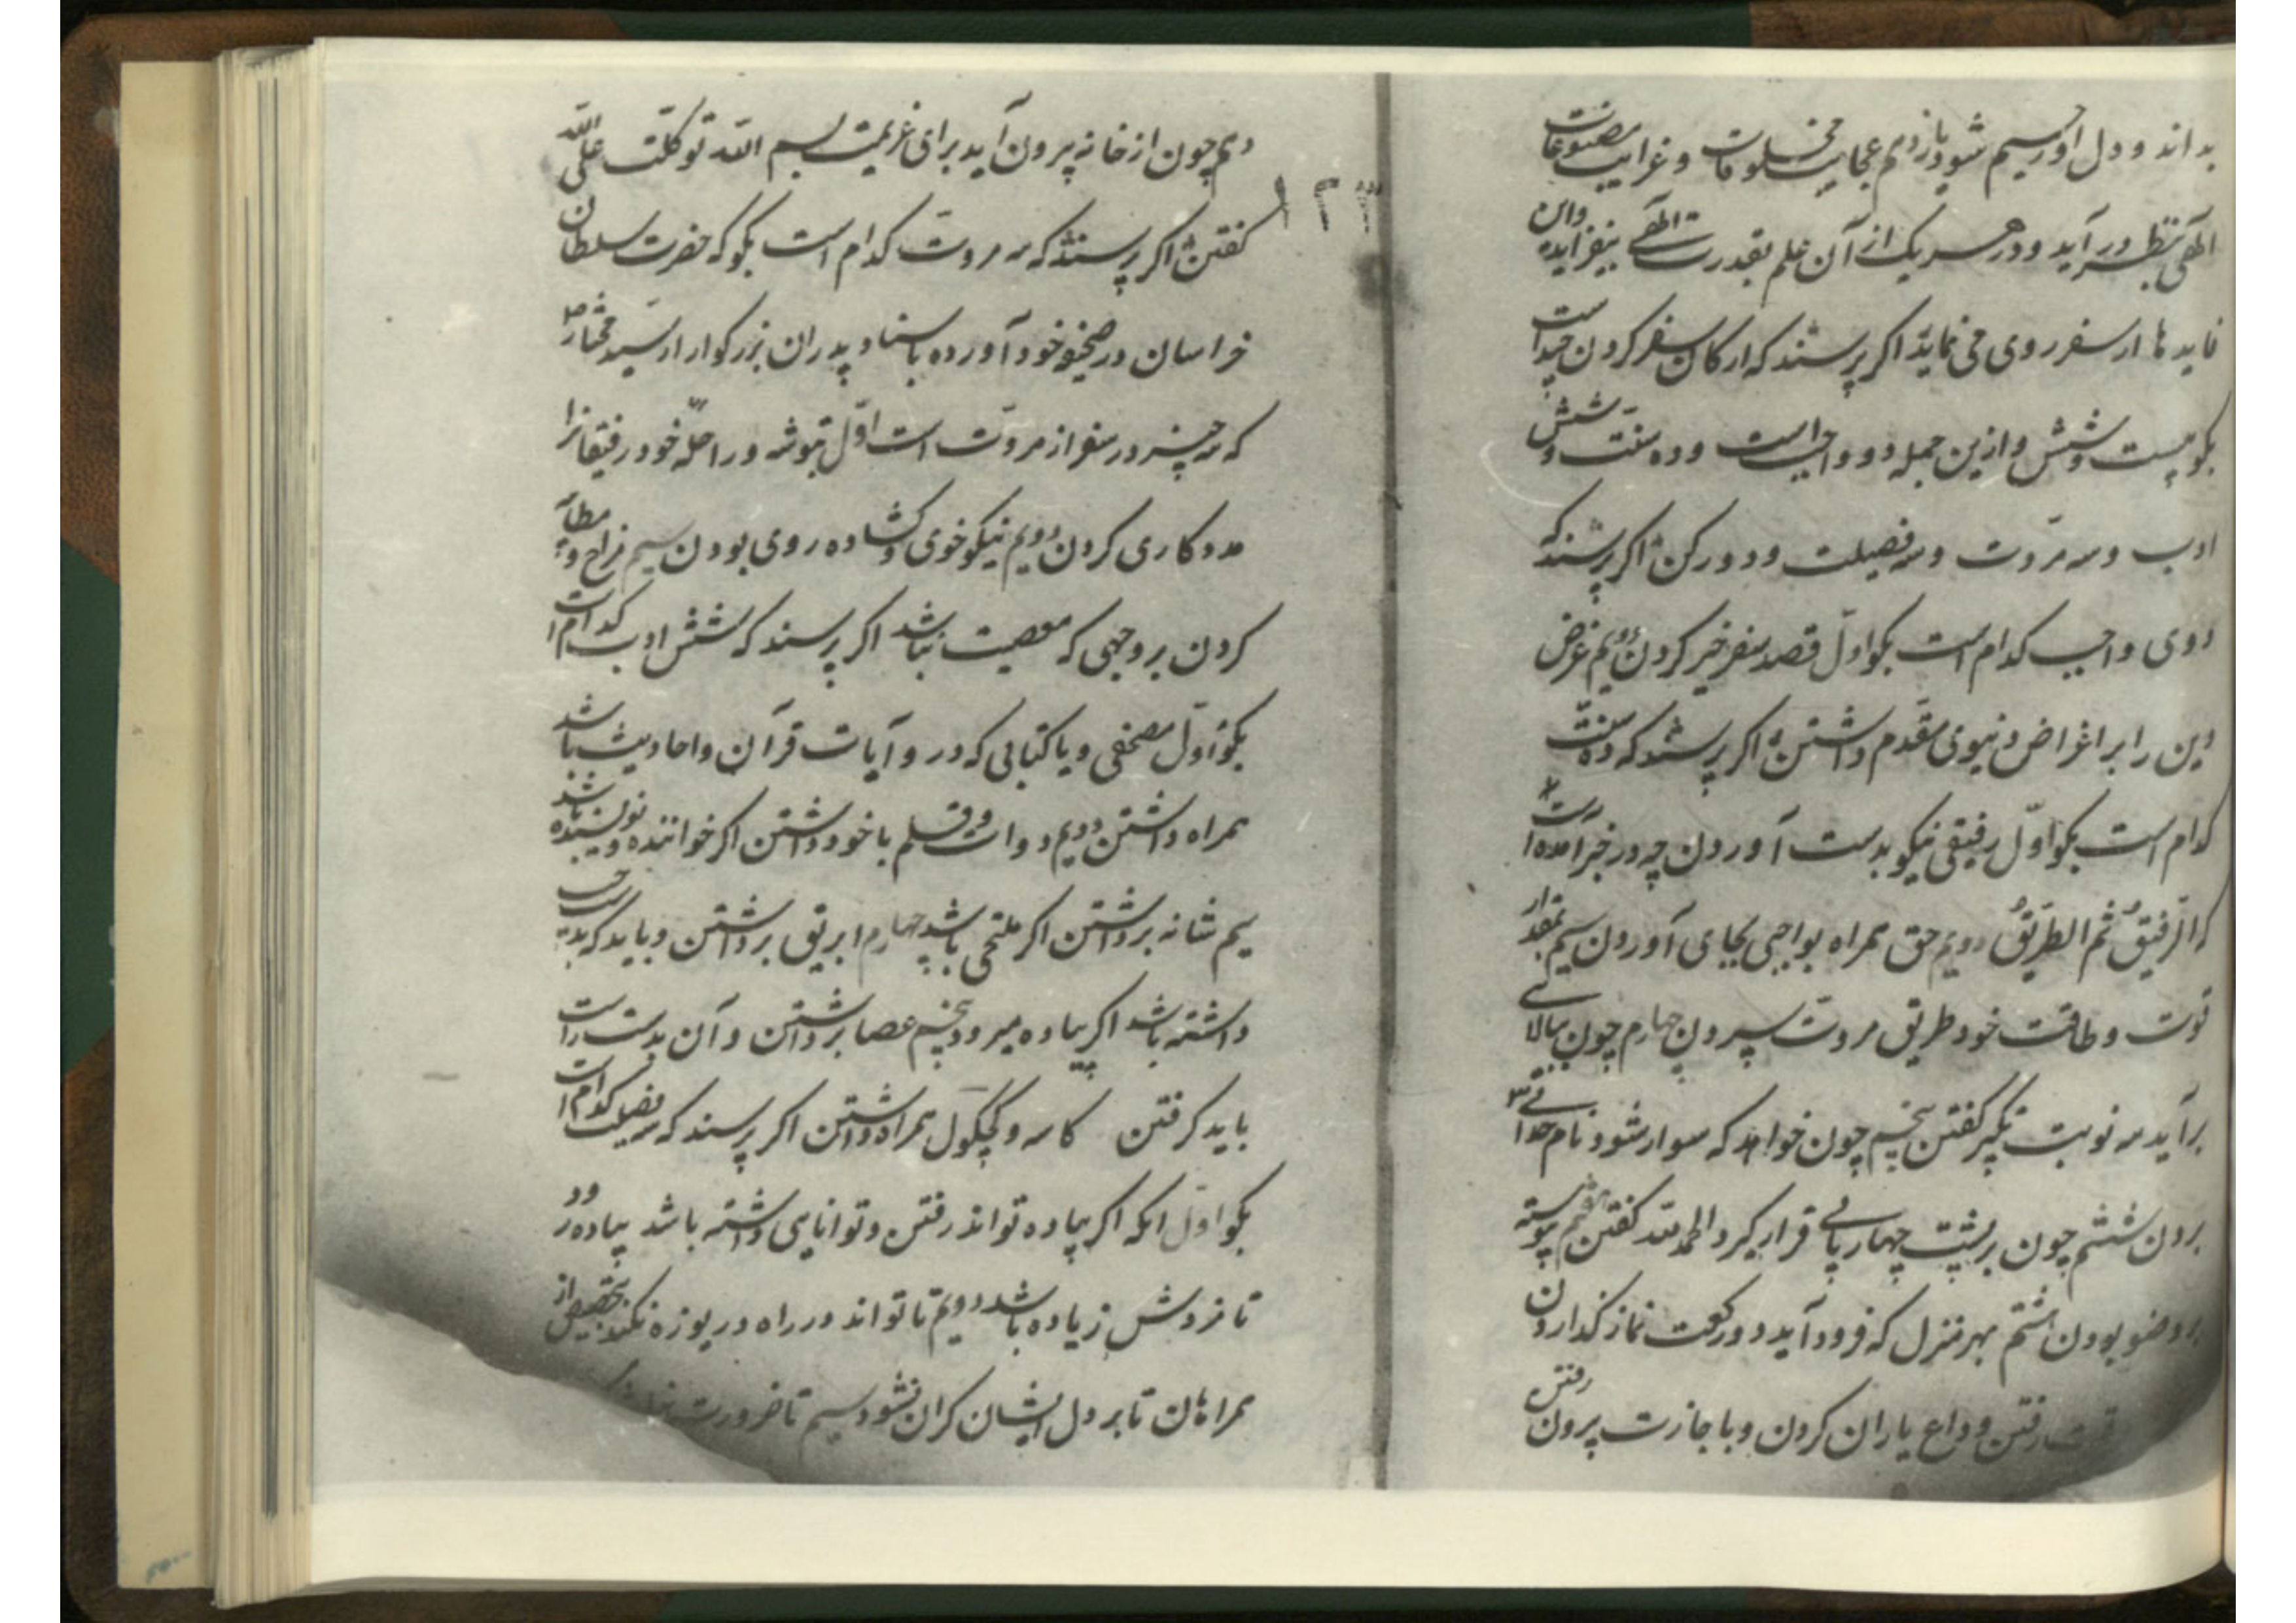 بداند و دل او رحیم شود یازدهم عجایب مخلوقات و غرایب مصنوعات
الهی بنظر در آید و در هر یک از آن علم بقدرت الهی بیفزاید و این
فایدها از سفر روی می نماید اگر پرسند که ارکان سفر کردن چند است
بکو بیست و شش و ازین جمله دو واجبست و ده سنت و شش
ادب و سه مروت و سه فضیلت و دو رکن اگر پرسند که
دوی واجب کدام است بکو اول قصد سفر خیر کردن دویم غرض
دین را بر اغراض دنیوی مقدم داشتن اگر پرسند که ده سنت
کدام است بکو اول رفیقی نیکو بدست آوردن چه در خبر آمده است
که الرفیقُ ثم الطریقُ دویم حق همراه بواجبی بجای آوردن سیم بمقدار
قوت و طاقت خود طریق مروت سپردن چهارم چون ببالائی
برآید سه نوبت تکبیر کفتن پنجم چون خواهد که سوار شود نام خدای
بردن ششم چون بر پشت چهارپای قرار کیرد الحمد لله کفتن هفتم پیوسته
بر وضو بودن هشتم بهر منزل که فرود آید دو رکعت نماز کذاردن
رفتن و وداع یاران کردن و با جازت بیرون رفتن
دهم چون از خانه بیرون آید برای عزیمت بسم الله توکلت علی الله
کفتن اگر پرسند که سه مروت کدام است بکو که حضرت سلطان
۱۲۳
خراسان در صحیفه خود آورده باسناد پدران بزرکوار از سید مختار
که سه چیز در سفر از مروت است اول بتوشه و راحله خود رفیقانرا
مددکاری کردن دویم نیکو خوی و کشاده روی بودن سیم مزاح و مطایبه
کردن بر وجهی که معصیت نباشد اکر پرسند که شش ادب کدام است
بکو اول مصحفی و یا کتابی که در و آیات قرآن و احادیث باشد
همراه داشتن دویم دوات و قلم با خود داشتن اکر خواننده و نویسنده باشد
سیم شانه برداشتن اکر ملتحی باشد چهارم ابریق برداشتن و باید که بدست چپ
داشته باشد اکر پیاده میرود پنجم عصا برداشتن و آن بدست راست
باید کرفتن کاسه و کچکول همراه داشتن اکر پرسند که سه فضیلت کدام است
بکو اول انکه اکر پیاده تواند رفتن و توانایی داشته باشد پیاده رود
تا مزدش زیاده باشد دویم تا تواند در راه دریوزه نکند بتخصیص از
همراهان تا بر دل ایشان کران نشود سیم تا ضرورت نباشد